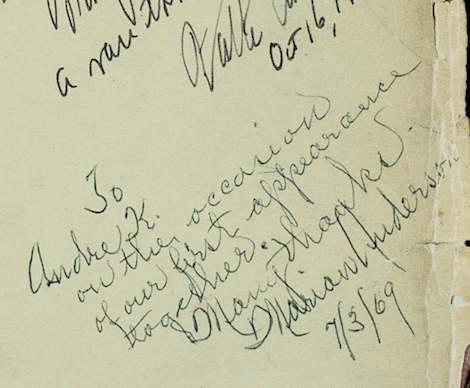 a rare
Oct 16, 1
To
Andre K.
on the occasion
of our first appearance
together. Many thanks.
Marian Anderson
7/3/69